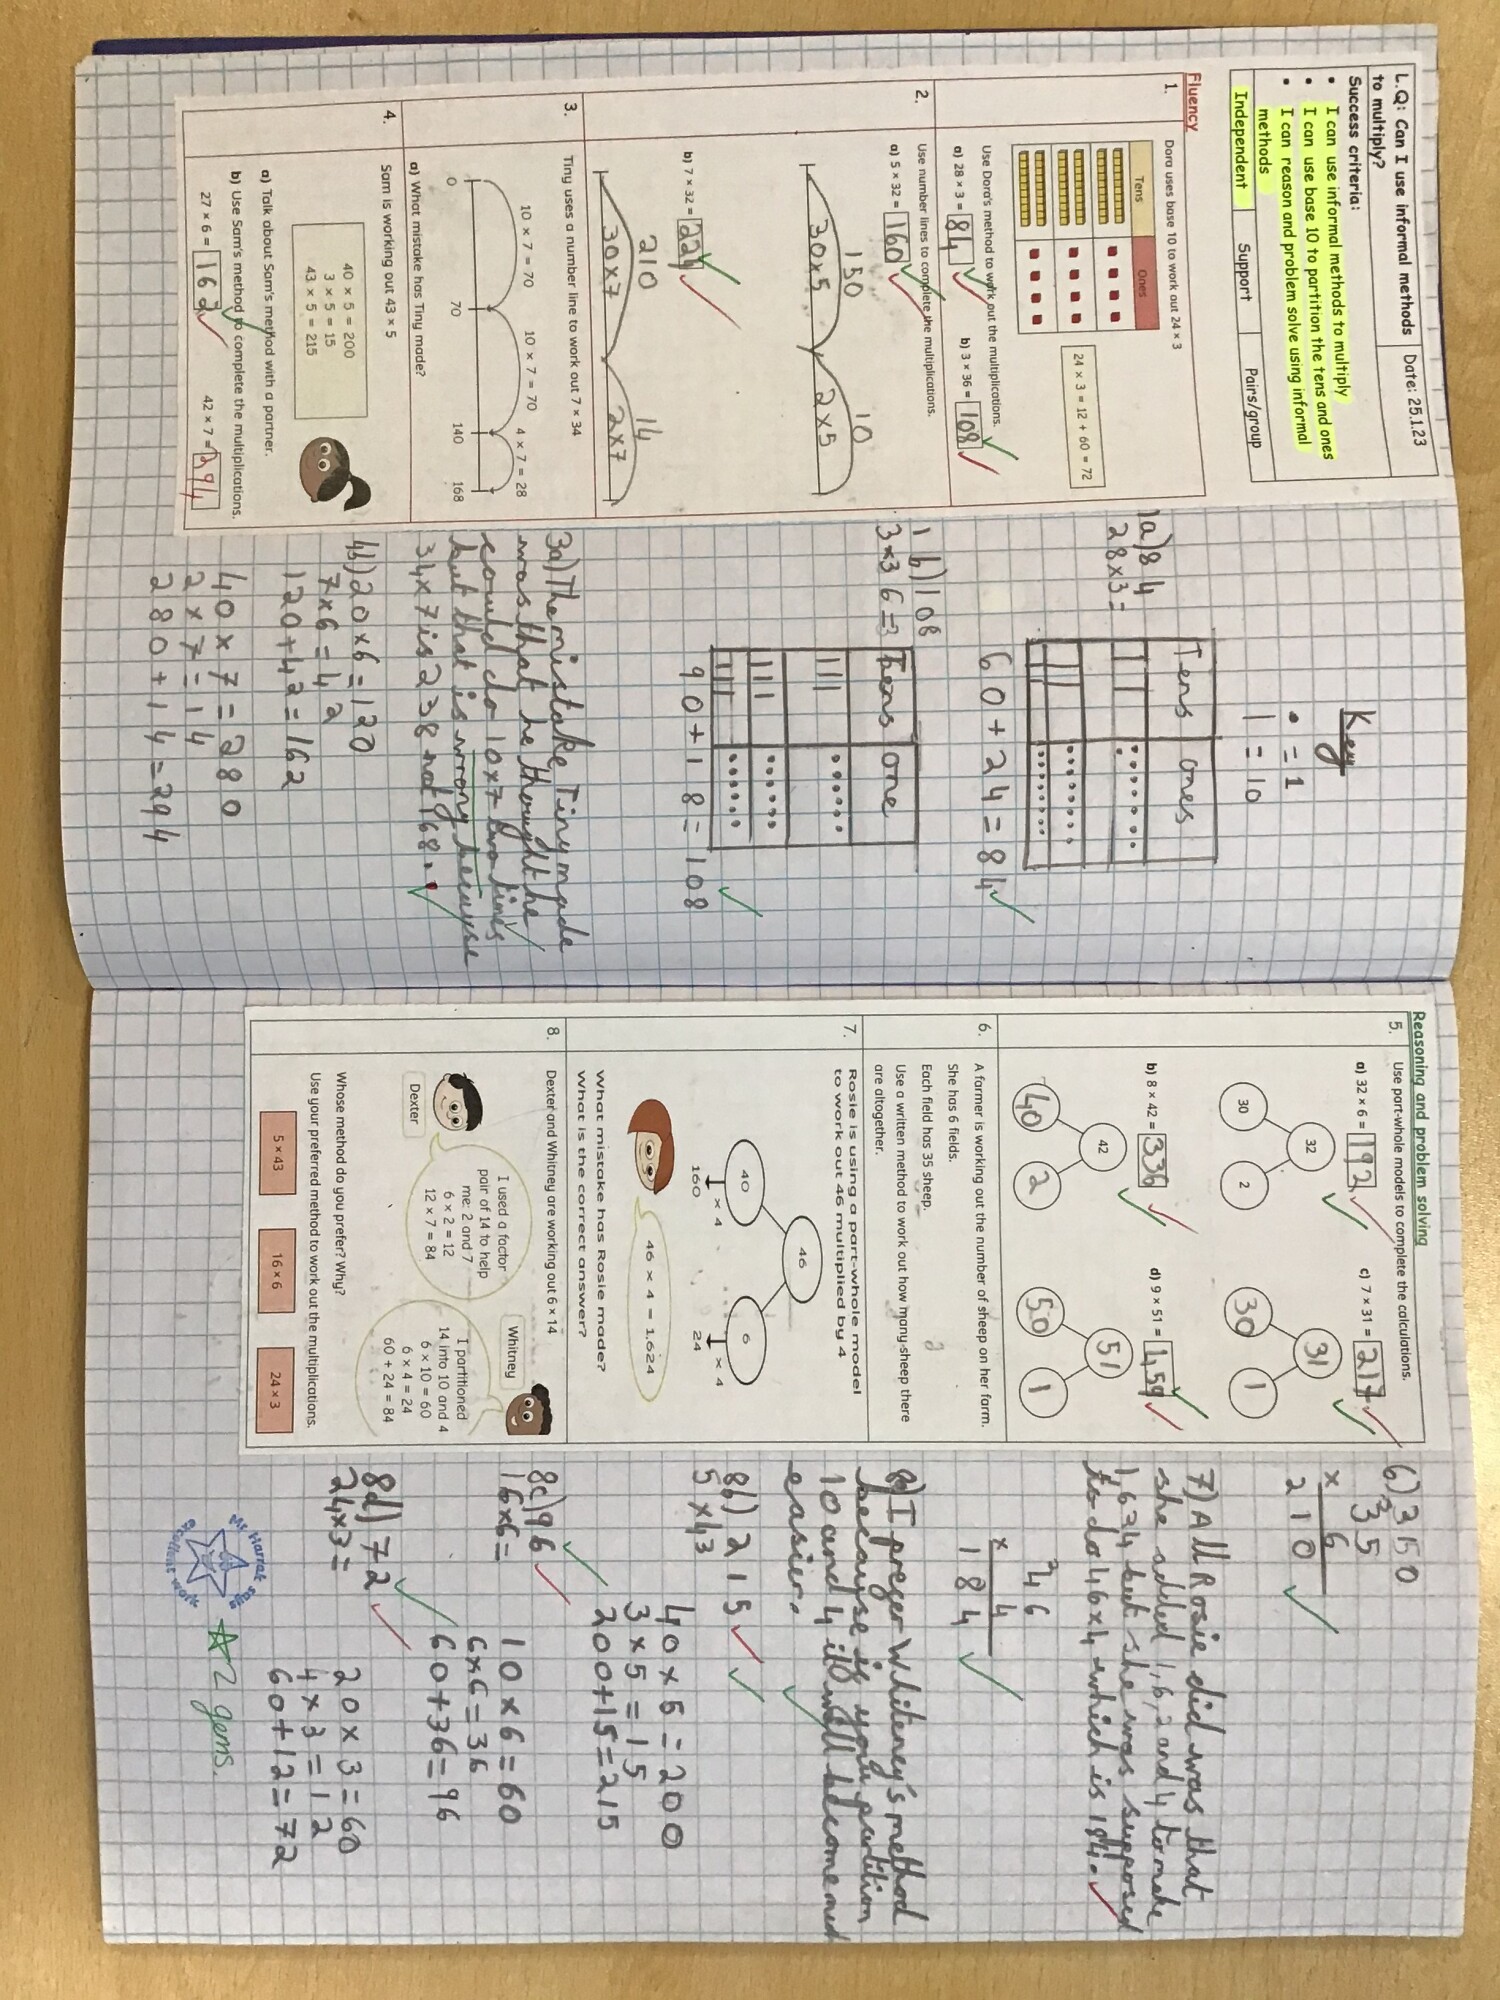 L.Q: Can I use informal methods to multiply?
Date: 25.1.23
Success criteria:
• I can use informal methods to multiply
• I can use base 10 to partition the tens and ones
• I can reason and problem solve using informal methods
Independent Support Pairs/group
Fluency
1. Dora uses base 10 to work out 24 × 3
Tens Ones
24 × 3 = 12 + 60 = 72
Use Dora's method to work out the multiplications.
a) 28 × 3 = 84 b) 3 × 36 = 108
2. Use number lines to complete the multiplications.
a) 5 × 32 = 160
150 10
30×5 2×5
b) 7 × 32 = 224
210 14
30×7 2×7
3. Tiny uses a number line to work out 7 × 34
10 × 7 = 70 10 × 7 = 70 4 × 7 = 28
0 70 140 168
a) What mistake has Tiny made?
4. Sam is working out 43 × 5
40 × 5 = 200
3 × 5 = 15
43 × 5 = 215
a) Talk about Sam's method with a partner.
b) Use Sam's method to complete the multiplications.
27 × 6 = 162 42 × 7 = 294
Key
• = 1
| = 10
1a) 84
28×3=
Tens ones
60+24=84
1b) 108
3×36=
Tens one
90+18=108
3a) The mistake Tiny made
was that he thought he
could do 10×7 two times
but that is wrong because
34×7 is 238 not 168.
4b) 20×6=120
7×6=42
120+42=162
40×7=280
2×7=14
280+14=294
Reasoning and problem solving
5. Use part-whole models to complete the calculations.
a) 32 × 6 = 192 c) 7 × 31 = 217
32 31
30 2 30 1
b) 8 × 42 = 336 d) 9 × 51 = 459
42 51
40 2 50 1
6. A farmer is working out the number of sheep on her farm.
She has 6 fields.
Each field has 35 sheep.
Use a written method to work out how many sheep there
are altogether.
7. Rosie is using a part-whole model
to work out 46 multiplied by 4
46
40 6
× 4 × 4
160 24
46 × 4 = 1,624
What mistake has Rosie made?
What is the correct answer?
8. Dexter and Whitney are working out 6 × 14
I used a factor
pair of 14 to help
me: 2 and 7
6 × 2 = 12
12 × 7 = 84
Dexter
Whitney
I partitioned
14 into 10 and 4
6 × 10 = 60
6 × 4 = 24
60 + 24 = 84
Whose method do you prefer? Why?
Use your preferred method to work out the multiplications.
5 × 43 16 × 6 24 × 3
6)
35
× 6
210
7) All Rosie did was that
she added 1,6,2 and 4 to make
but she was supposed
to do 46×4 which is 184.
46
× 4
184
I prefer Whiteney's method
because if you partition
10 and 4 it will become
easier.
8b) 215
5×43
40×5=200
3×5=15
200+15=215
8c) 96
16×6=
10×6=60
6×6=36
60+36=96
8d) 72
24×3=
20×3=60
4×3=12
60+12=72
Mr Harrak says
excellent work
2 gems.